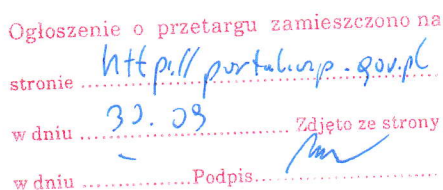 Ogłoszenie o przetargu zamieszczono na
stronie http://portal.uzp.gov.pl
w dniu 30.09 Zdjęto ze strony
w dniu ............Podpis............